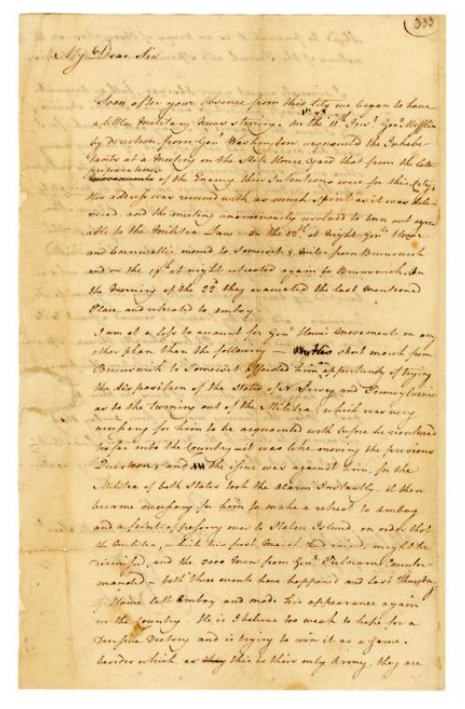 333
My Dear Sir
Soon after your absence from this City we began to have
a little Military News stirring. On the 11th Inst. Genl. Mifflin
by direction from Genl. Washington acquainted the Inhabi-
tants at a Meeting in the State House Yard that from the late
preparations
of the Enemy their Intentions were for this City,
the address was received with as much Spirit as it was deli-
vered, and the meeting unanimously resolved to turn out agree-
able to the Militia Law. On the 13th at night Genls. Howe
and Cornwallis moved to Somerset 8 miles from Brunswick
and on the 19th at night retreated again to Brunswick. On
the Morning of the 22d they evacuated the last mentioned
Place and retreated to Amboy.
I am at a loss to account for Genl. Howe's Movements on any
other plan than the following — short march from
Brunswick to Somerset afforded him an opportunity of trying
the disposition of the States of N Jersey and Pennsylvania
as to the turning out of the Militia, which was very
necessary for him to be acquainted with before he ventured
too far into the Country it was like moving the previous
Question, and the was against him, for the
Militia of both States took the alarm Instantly. it then
became necessary for him to make a retreat to Amboy
and a feint of passing over to Staten Island, in order that
the Militia, which his first March had raised, might be
dismissed, and the 3000 Men from Genl. Putnam Counter-
manded — both these events have happened and last Thursday
Howe left Amboy and made his appearance again
in the Country. He is I believe too weak to hope for a
decisive Victory and is trying to win it as a Game.
besides which, as this is their only Army, they are